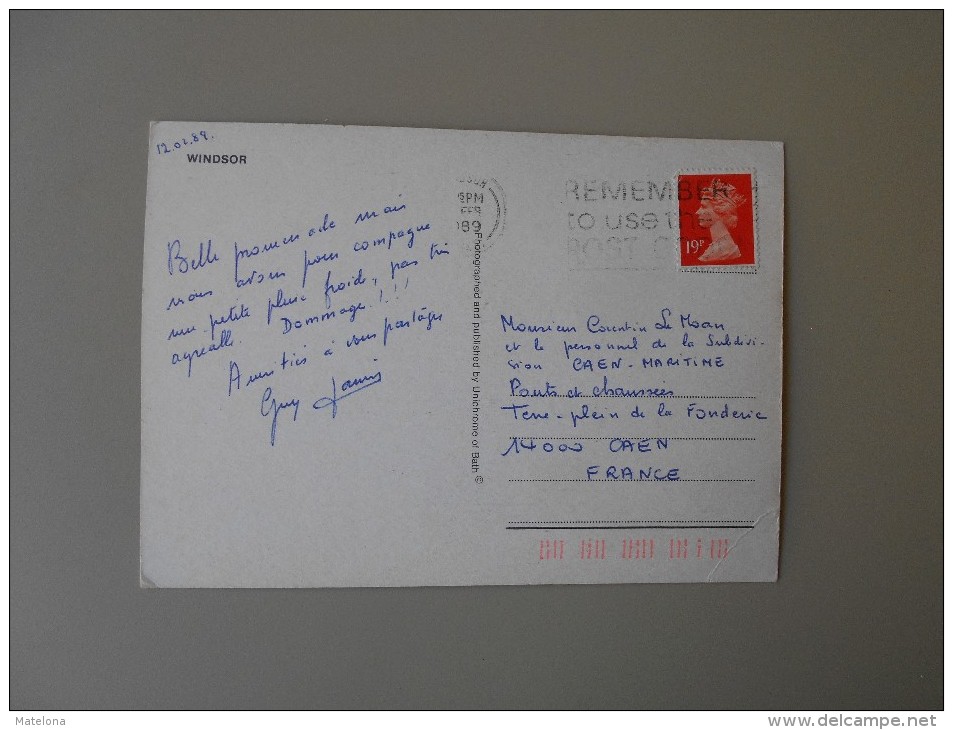 12.02.89.
WINDSOR
Belle promenade mais
nous avons pour compagne
une petite pluie froide, pas très
agréable. Dommage!!!
Amitiés à vous partager
Guy
©Photographed and published by Unichrome of Bath ©
PM
FEB
1989
REMEMBER
to use the
POST
19P
Monsieur Corentin Le Moan
et le personnel de la Subdivi-
sion CAEN-MARITIME
Ponts et chaussées
Terre-plein de la Fonderie
14000 CAEN
FRANCE
Matelona
www.delcampe.net